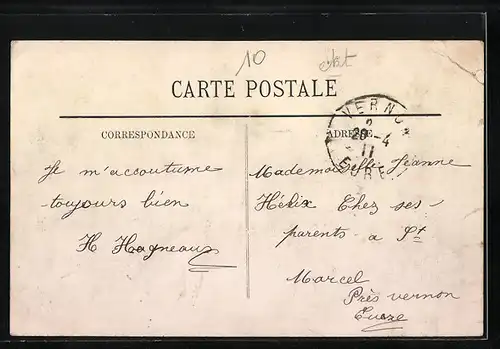 10
CARTE POSTALE
VERNON
2
29-4
11
EURE
CORRESPONDANCE
ADRESSE
Je m'accoutume
toujours bien
H Hagneaux
Mademoiselle Jeanne
Hélix Chez ses
parents a St
Marcel
Près vernon
Eure